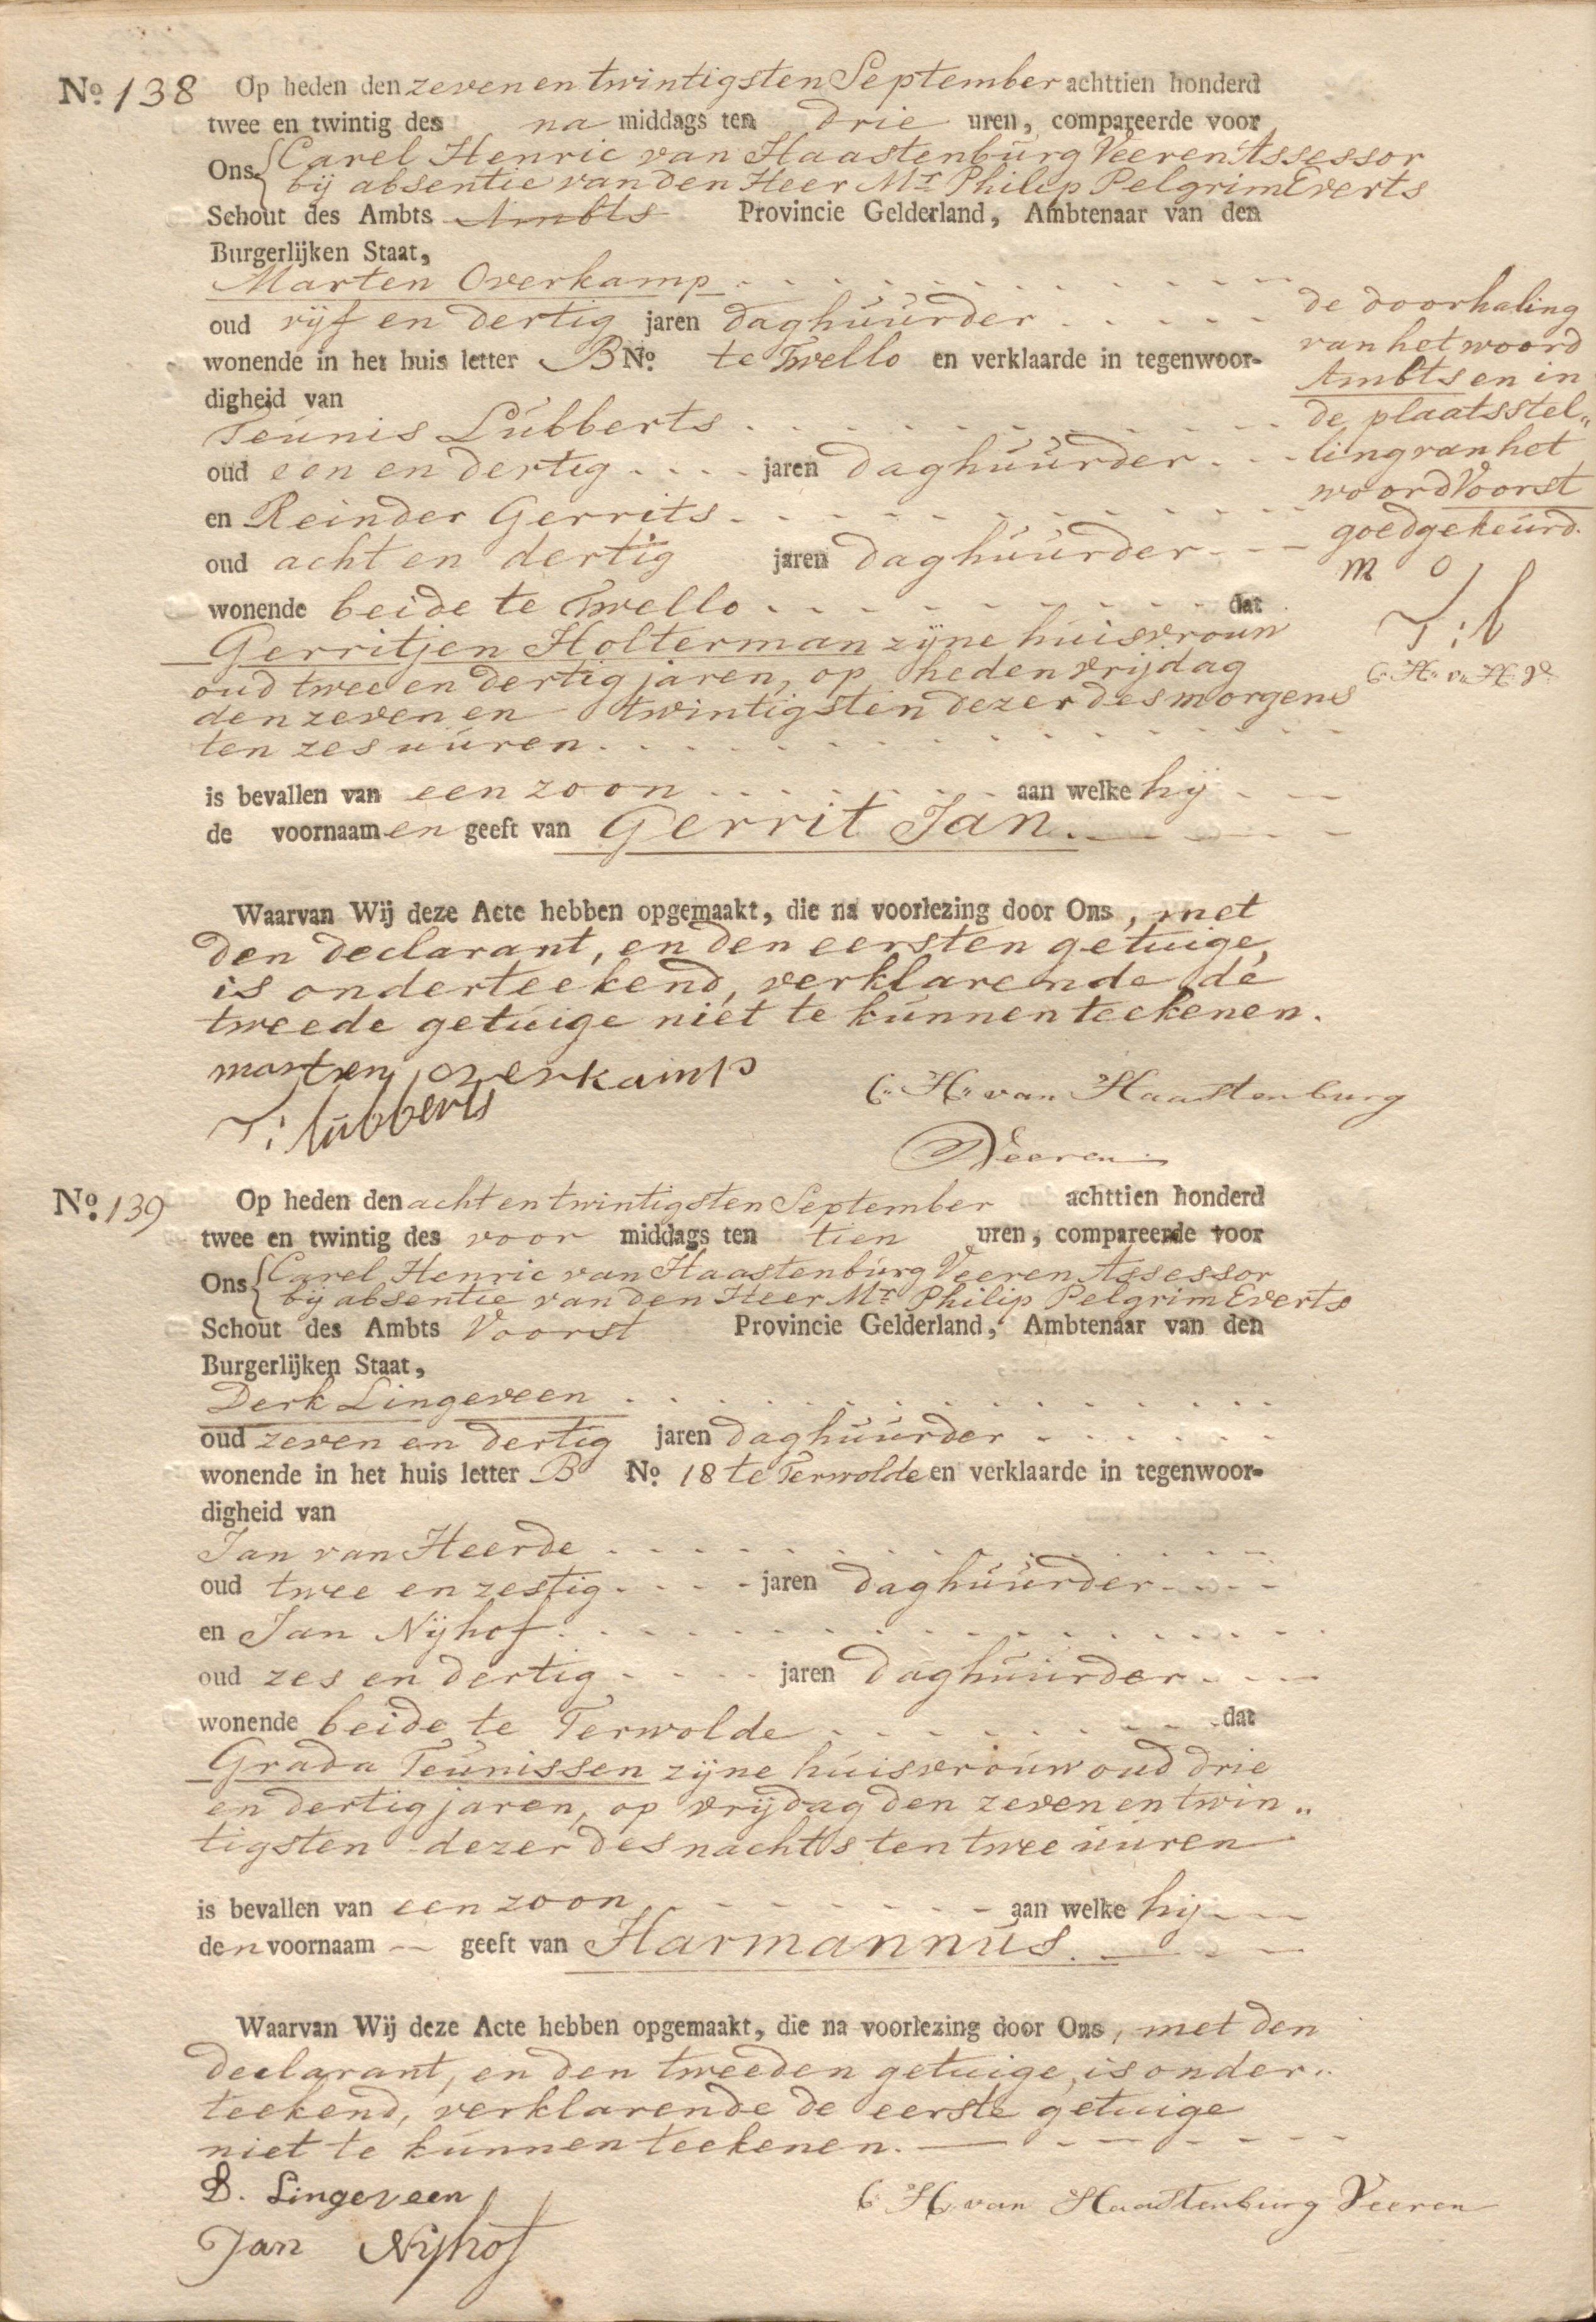 No. 138 Op heden den zeven en twintigsten September achttien honderd
twee en twintig des na middags ten drie uren, compareerde voor
Ons Carel Henric van Haastenburg Veeren Assessor
bij absentie van den Heer Mr Philip Pelgrim Everts
Schout des Ambts Ambts Provincie Gelderland, Ambtenaar van den
Burgerlijken Staat,
Marten Overkamp
oud vijf en dertig jaren daghuurder
wonende in het huis letter B No. te Twello en verklaarde in tegenwoor-
digheid van
Teunis Lubberts
oud een en dertig jaren daghuurder
en Reinder Gerrits
oud acht en dertig jaren daghuurder
wonende beide te Twello dat
Gerritjen Holterman zijne huisvrouw
oud twee en dertig jaren, op heden vrijdag
den zeven en twintigsten dezer des morgens
ten zes uuren
is bevallen van een zoon aan welke hij
de voornaamen geeft van Gerrit Jan.
Waarvan Wij deze Acte hebben opgemaakt, die na voorlezing door Ons, met
den declarant, en den eersten getuige,
is onderteekend, verklarende de
tweede getuige niet te kunnen teekenen.
marten overkamp
T: lubberts
C. H. van Haastenburg
Veeren
de doorhaling
van het woord
Ambts en in
de plaatsstel„
ling van het
woord Voorst
goedgekeurd.
m o
T: l
C. H. v. H. V.
No. 139 Op heden den acht en twintigsten September achttien honderd
twee en twintig des voor middags ten tien uren, compareerde voor
Ons Carel Henric van Haastenburg Veeren Assessor
bij absentie van den Heer Mr Philip Pelgrim Everts
Schout des Ambts Voorst Provincie Gelderland, Ambtenaar van den
Burgerlijken Staat,
Derk Lingeveen
oud zeven en dertig jaren daghuurder
wonende in het huis letter B No. 18 te Terwolde en verklaarde in tegenwoor-
digheid van
Jan van Heerde
oud twee en zestig jaren daghuurder
en Jan Nijhof
oud zes en dertig jaren daghuurder
wonende beide te Terwolde dat
Grada Teunissen zijne huisvrouw oud drie
en dertig jaren, op vrijdag den zeven en twin„
tigsten dezer des nachts ten twee uuren
is bevallen van een zoon aan welke hij
den voornaam geeft van Harmannus.
Waarvan Wij deze Acte hebben opgemaakt, die na voorlezing door Ons, met den
declarant, en den tweeden getuige, is onder„
teekend, verklarende de eerste getuige
niet te kunnen teekenen.
D. Lingeveen
Jan Nijhof
C H. van Haastenburg Veeren